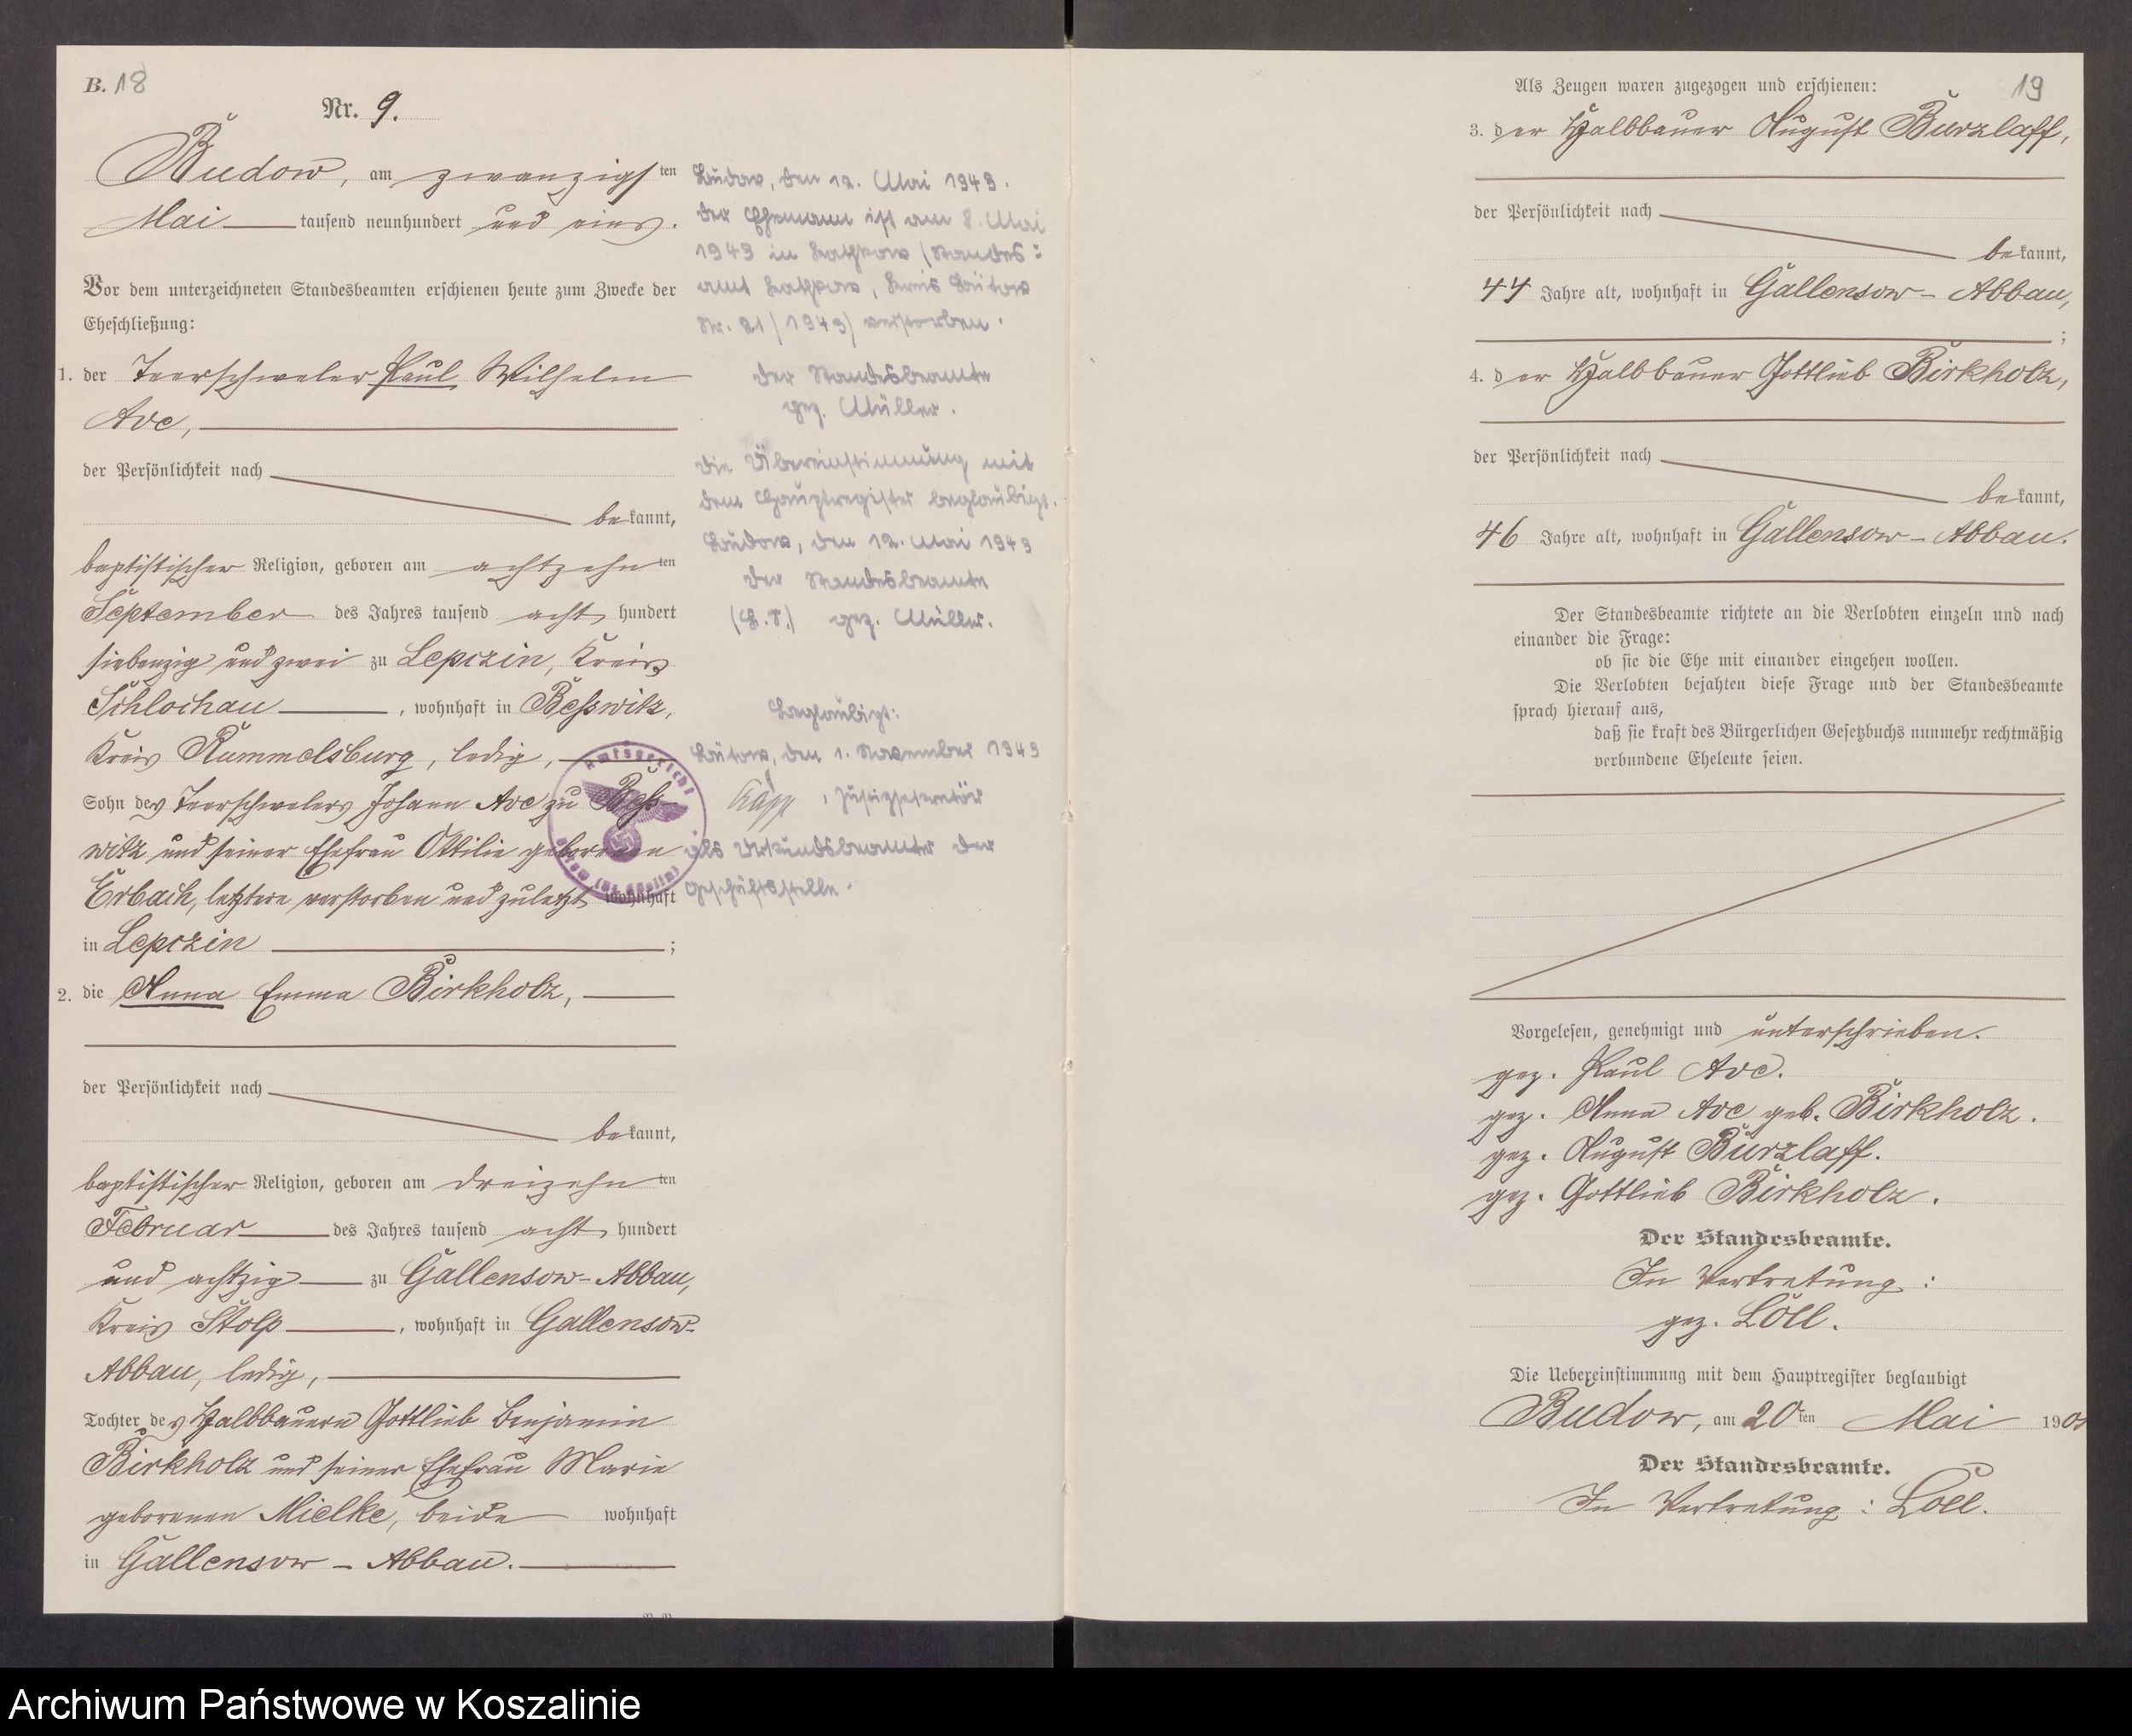 B. 18
Nr. 9.
Budow, am zwanzigsten
Mai tausend neunhundert und eins.
Vor dem unterzeichneten Standesbeamten erschienen heute zum Zwecke der
Eheschließung:
1. der Teerschweler Paul Wilhelm
Ave,
der Persönlichkeit nach
bekannt,
baptistischer Religion, geboren am achtzehnten
September des Jahres tausend acht hundert
siebenzig und zwei zu Lepczin, Kreis
Schlochau, wohnhaft in Beßwitz,
Kreis Rummelsburg, ledig,
Sohn des Teerschwelers Johann Ave zu Beß-
witz und seiner Ehefrau Ottilie geborenen
Erbach, letztere verstorben und zuletzt wohnhaft
in Lepczin ;
2. die Anna Emma Birkholz,
der Persönlichkeit nach
bekannt,
baptistischer Religion, geboren am dreizehnten
Februar des Jahres tausend acht hundert
und achtzig zu Gallensow-Abbau,
Kreis Stolp, wohnhaft in Gallensow-
Abbau, ledig,
Tochter des Halbbauern Gottlieb Benjamin
Birkholz und seiner Ehefrau Marie
geborenen Mielke, beide wohnhaft
in Gallensow-Abbau.
Budow, den 12. Mai 1943.
Der Ehemann ist am 8. Mai
1943 in (Standes=
amt , Kreis Bütow
Nr. 21/1943) verstorben.
Der Standesbeamte
gez. Müller.
Die Übereinstimmung mit
dem Hauptregister beglaubigt.
Budow, den 12. Mai 1943
Der Standesbeamte
(L.S.) gez. Müller.
Beglaubigt:
Bütow, den 1. November 1943
Kapp, Justizsekretär
als Urkundsbeamter der
Geschäftsstelle.
Amtsgericht
Bütow (Bz. Köslin)
19
Als Zeugen waren zugezogen und erschienen:
3. der Halbbauer August Burzlaff,
der Persönlichkeit nach
bekannt,
44 Jahre alt, wohnhaft in Gallensow-Abbau,
;
4. der Halbbauer Gottlieb Birkholz,
der Persönlichkeit nach
bekannt,
46 Jahre alt, wohnhaft in Gallensow-Abbau.
Der Standesbeamte richtete an die Verlobten einzeln und nach
einander die Frage:
ob sie die Ehe mit einander eingehen wollen.
Die Verlobten bejahten diese Frage und der Standesbeamte
sprach hierauf aus,
daß sie kraft des Bürgerlichen Gesetzbuchs nunmehr rechtmäßig
verbundene Eheleute seien.
Vorgelesen, genehmigt und unterschrieben.
gez. Paul Ave.
gez. Anna Ave geb. Birkholz.
gez. August Burzlaff.
gez. Gottlieb Birkholz.
Der Standesbeamte.
In Vertretung:
gez. Löll.
Die Uebereinstimmung mit dem Hauptregister beglaubigt
Budow, am 20ten Mai 1901
Der Standesbeamte.
In Vertretung: Löll.
Archiwum Państwowe w Koszalinie